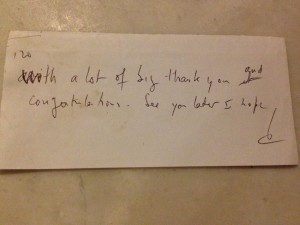 120
With a lot of big thank you and
congratulations. See you later I hope